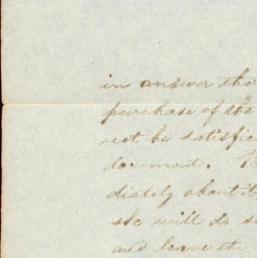 in answer
purchase of the
not be satisfied
document.
diately about it
she will do
and leave the